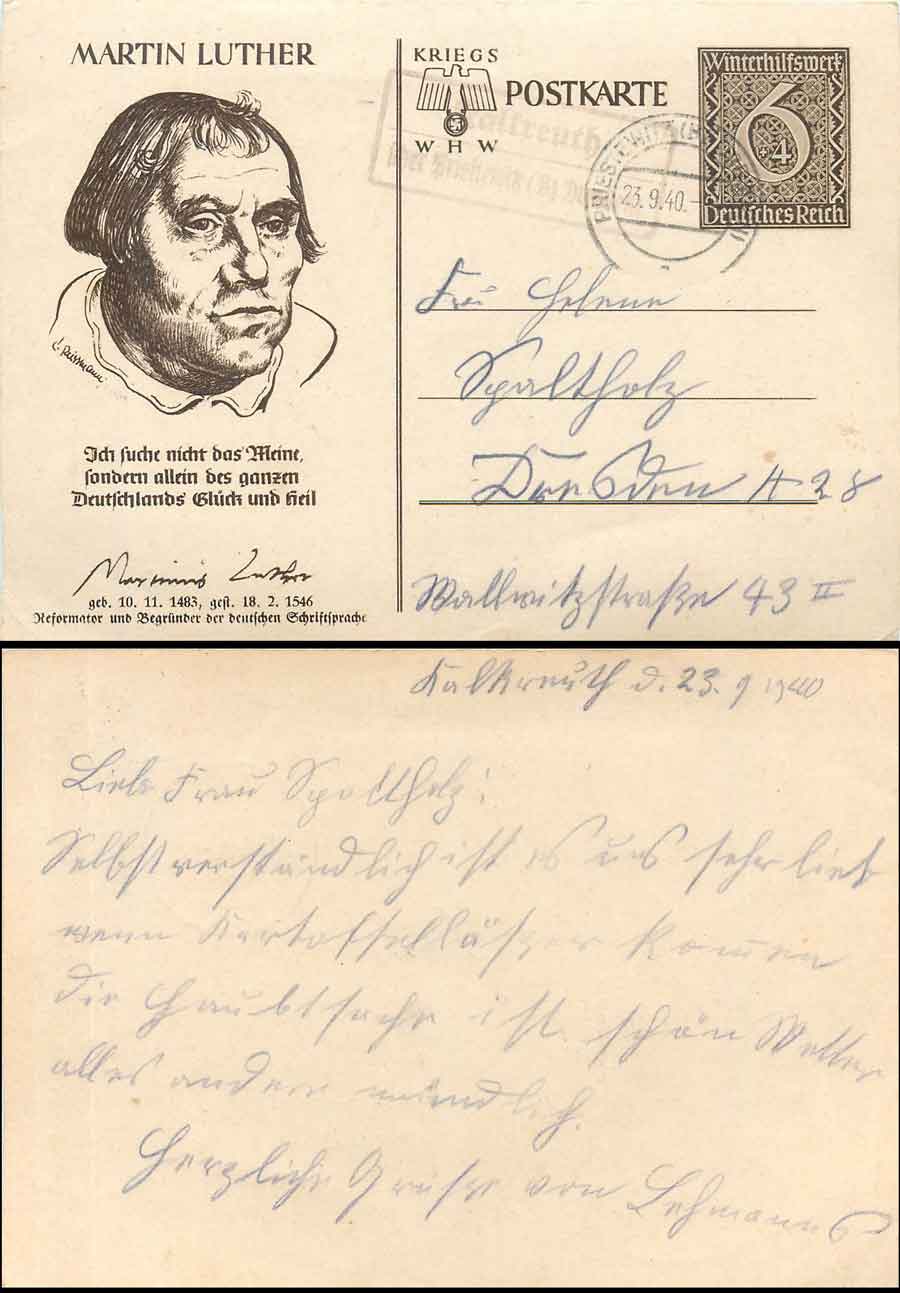 MARTIN LUTHER
C. Reissmann
Ich suche nicht das Meine,
sondern allein des ganzen
Deutschlands Glück und Heil
Martinus Luther
geb. 10. 11. 1483, gest. 18. 2. 1546
Reformator und Begründer der deutschen Schriftsprache
KRIEGS
WHW
POSTKARTE
Winterhilfswerk
6
+4
Deutsches Reich
PRIESTEWITZ
23.9.40.
Kalkreuth
über
Frau Helene
Spaltholz
Dresden A 28
Wallwitzstraße 43 II
Kalkreuth d. 23. 9 1940
Liebe Frau Spaltholz!
Selbstverständlich ist es uns sehr lieb
wenn Kartoffelläßer kommen
die Haubtsache ist schön Wetter
alles andere mündlich.
Herzliche Grüße von Lehmanns